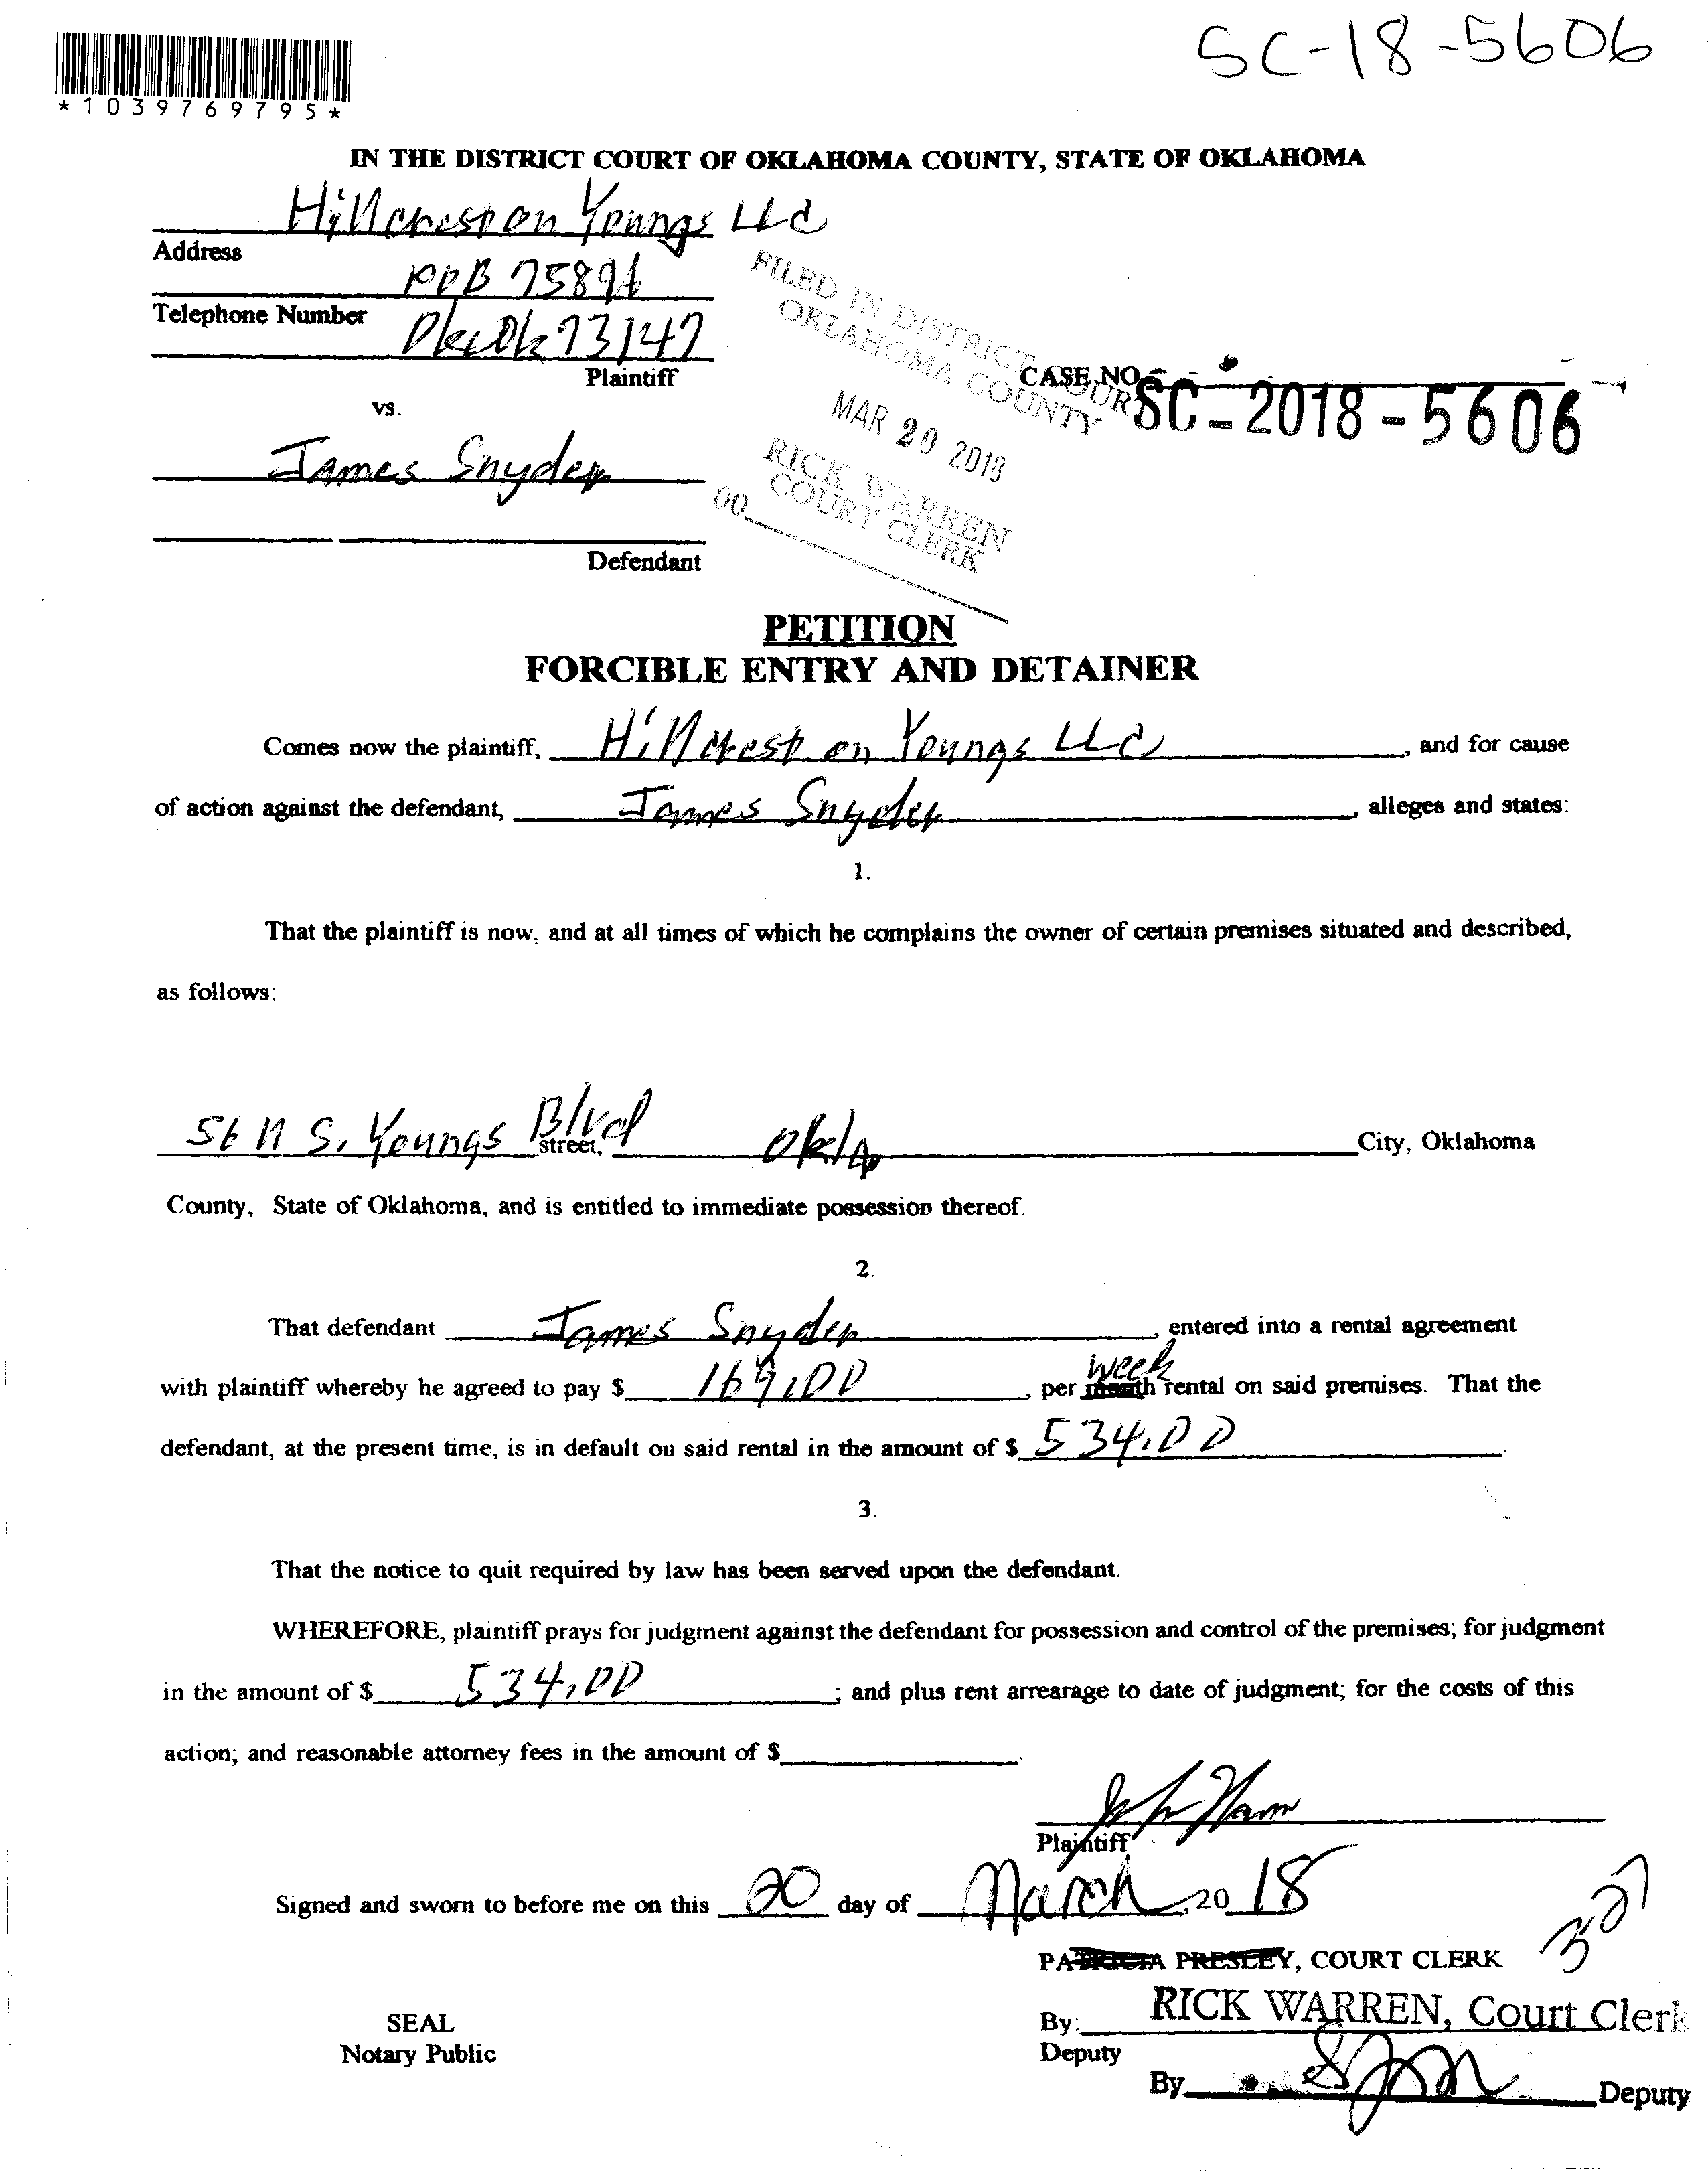 SC-18-5606
*1039769795*
IN THE DISTRICT COURT OF OKLAHOMA COUNTY, STATE OF OKLAHOMA
Hillcrest on Youngs LLC
Address
POB 75894
Telephone Number
Okc Ok 73147
Plaintiff
FILED IN DISTRICT COURT
OKLAHOMA COUNTY
MAR 20 2018
RICK WARREN
COURT CLERK
00
CASE NO. SC-2018-5606
vs.
James Snyder
Defendant
PETITION
FORCIBLE ENTRY AND DETAINER
Comes now the plaintiff, Hillcrest on Youngs LLC, and for cause
of action against the defendant, James Snyder, alleges and states:
1.
That the plaintiff is now, and at all times of which he complains the owner of certain premises situated and described,
as follows:
S. Youngs Blvd street, Okla City, Oklahoma
County, State of Oklahoma, and is entitled to immediate possession thereof.
2.
That defendant James Snyder, entered into a rental agreement
with plaintiff whereby he agreed to pay $ 169.00, per month week rental on said premises. That the
defendant, at the present time, is in default on said rental in the amount of $ 534.00.
3.
That the notice to quit required by law has been served upon the defendant.
WHEREFORE, plaintiff prays for judgment against the defendant for possession and control of the premises; for judgment
in the amount of $ 534.00; and plus rent arrearage to date of judgment; for the costs of this
action; and reasonable attorney fees in the amount of $
Plaintiff
Signed and sworn to before me on this 20 day of March, 20 18
PATRICIA PRESLEY, COURT CLERK
327
SEAL
Notary Public
By: RICK WARREN, Court Clerk
Deputy
By Deputy